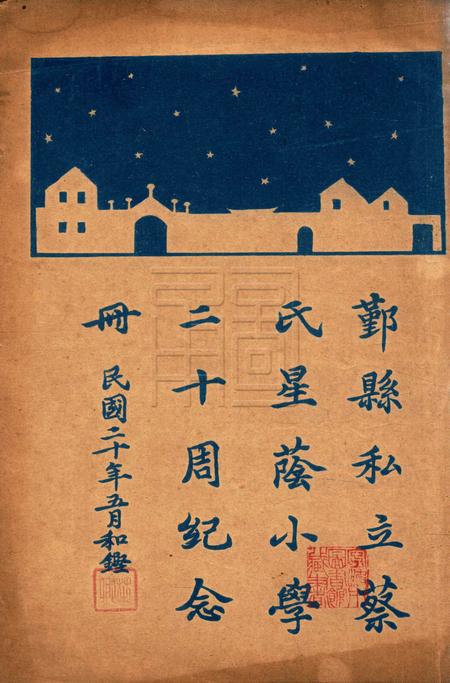 鄞縣私立蔡
氏星蔭小學
二十周紀念
冊
民國二十年五月和鏗